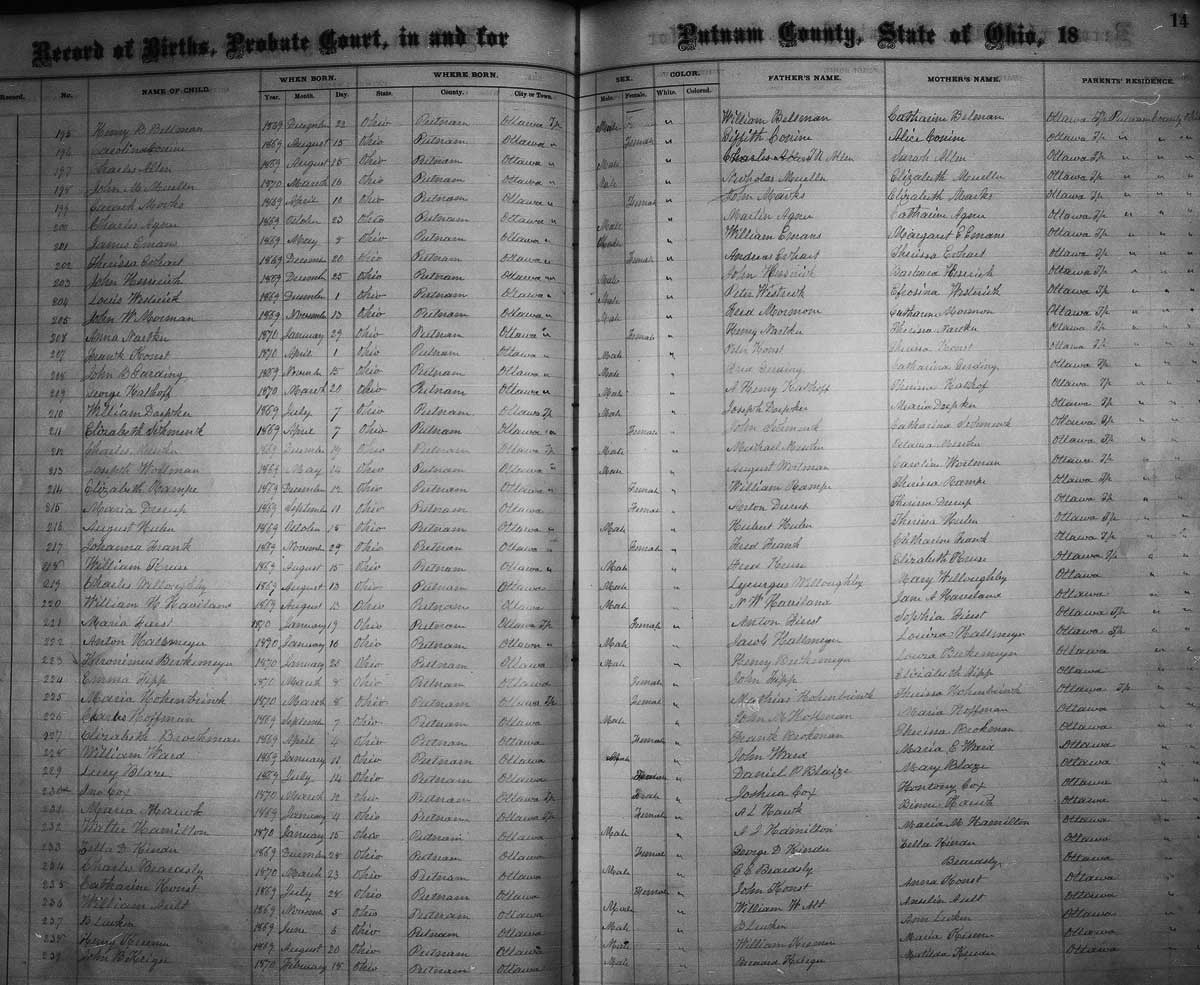 14
Record of Births, Probate Court, in and for Putnam County, State of Ohio, 18
Record. No. NAME OF CHILD. WHEN BORN. WHERE BORN. SEX. COLOR. FATHER'S NAME. MOTHER'S NAME. PARENTS' RESIDENCE.
Year. Month. Day. State. County. City or Town. Male. Female. White. Colored.
195 Henry B Beltman 1869 December 22 Ohio Putnam Ottawa Tp Male " William Beltman Catharine Beltman Ottawa Tp Putnam County Ohio
196 1869 August 15 Ohio Putnam Ottawa " Female " Alice Ottawa Tp " "
197 Charles Allen 1869 August 15 Ohio Putnam Ottawa " Male " Allen Sarah Allen Ottawa Tp " "
198 John M Mueller 1870 March 16 Ohio Putnam Ottawa " Male " Nicholas Mueller Elizabeth Mueller Ottawa Tp " "
199 1869 April 10 Ohio Putnam Ottawa " Female " John Marks Elizabeth Marks Ottawa Tp " "
200 Charles Agner 1869 October 23 Ohio Putnam Ottawa " Male " Martin Agner Catharine Agner Ottawa Tp " "
201 James Emans 1869 May 8 Ohio Putnam Ottawa " Male " William Emans Margaret E Emans Ottawa Tp " "
202 Theressa Evhart 1869 December 20 Ohio Putnam Ottawa " Female " Andreas Evhart Theressa Evhart Ottawa Tp " "
203 John 1869 December 25 Ohio Putnam Ottawa " Male " John Barbara Ottawa Tp " "
204 Louis 1869 December 1 Ohio Putnam Ottawa " Male " Peter Efrosina Ottawa Tp " "
205 John W Morman 1869 November 13 Ohio Putnam Ottawa " Male " Fred Mormon Catharine Mormon Ottawa Tp " "
206 Anna Nartker 1870 January 29 Ohio Putnam Ottawa " Female " Henry Nartker Theressa Nartker Ottawa Tp " "
207 Frank Konst 1870 April 1 Ohio Putnam Ottawa " Male " Peter Konst Theressa Konst Ottawa Tp " "
208 John B Gerding 1869 November 15 Ohio Putnam Ottawa " Male " Fred Gerding Catharina Gerding Ottawa Tp " "
209 George Kalhoff 1870 March 20 Ohio Putnam Ottawa " Male " A Henry Kalhoff Theressa Kalhof Ottawa Tp " "
210 William Doepker 1869 July 7 Ohio Putnam Ottawa Tp Male " Joseph Doepker Maria Doepker Ottawa Tp " "
211 Elizabeth Schmenk 1869 April 7 Ohio Putnam Ottawa " Female " John Schmenk Catharina Schmenk Ottawa Tp " "
212 Charles 1869 December 19 Ohio Putnam Ottawa Tp Male " Michael Ottawa Tp " "
213 Joseph Woitman 1869 May 24 Ohio Putnam Ottawa " Male " August Woitman Caroline Woitman Ottawa Tp " "
214 Elizabeth Kampe 1869 December 12 Ohio Putnam Ottawa " Female " William Kampe Theressa Kampe Ottawa Tp " "
215 Maria 1869 September 11 Ohio Putnam Ottawa Female " Anton Theressa Ottawa Tp " "
216 August Huber 1869 October 18 Ohio Putnam Ottawa " Male " Hubert Theressa Ottawa Tp " "
217 Johanna Frank 1869 November 29 Ohio Putnam Ottawa " Female " Fred Frank Catharine Frank Ottawa Tp " "
218 William Kruse 1869 August 15 Ohio Putnam Ottawa " Male " Fred Kruse Elizabeth Kruse Ottawa Tp " "
219 Charles Willoughby 1869 August 13 Ohio Putnam Ottawa Male " Lycurgus Willoughby Mary Willoughby Ottawa " "
220 William H Haviland 1869 August 13 Ohio Putnam Ottawa Male " N W Haviland Jane A Haviland Ottawa " "
221 Maria Fiest 1870 January 19 Ohio Putnam Ottawa Tp Female " Anton Fiest Sophia Fiest Ottawa Tp " "
222 Anton Hallmeyer 1870 January 16 Ohio Putnam Ottawa " Male " Jacob Hallmeyer Louisa Hallmeyer Ottawa Tp " "
223 Hieronimus Berkemeyer 1870 January 25 Ohio Putnam Ottawa Male " Henry Berkemeyer Laura Berkemeyer Ottawa " "
224 Emma Fipp 1870 March 8 Ohio Putnam Ottawa Female " John Fipp Elizabeth Fipp Ottawa " "
225 Maria Hohenbrink 1870 March 8 Ohio Putnam Ottawa Tp Female " Mathias Hohenbrink Theressa Hohenbrink Ottawa Tp " "
226 Charles Hoffman 1869 September 7 Ohio Putnam Ottawa Male " John M Hoffman Maria Hoffman Ottawa " "
227 Elizabeth Brockman 1869 April 4 Ohio Putnam Ottawa Female " Frank Brokman Thresina Brokman Ottawa " "
228 William Ward 1869 January 11 Ohio Putnam Ottawa Male " John Ward Maria E Ward Ottawa " "
229 Lucy Blaze 1869 July 14 Ohio Putnam Ottawa Female " Daniel P Blaize Mary Blaize Ottawa " "
230 Cox 1870 March 12 Ohio Putnam Ottawa Tp Male " Joshua Cox Cox Ottawa " "
231 Maria Hawk 1869 January 4 Ohio Putnam Ottawa Tp Female " A L Hawk Hawk Ottawa " "
232 Walter Hamilton 1870 January 15 Ohio Putnam Ottawa Male " A J Hamilton Maria M Hamilton Ottawa " "
233 Zella D Kinder 1869 December 28 Ohio Putnam Ottawa Female " George D Kinder Zella Kinder Ottawa " "
234 Charles Beardsly 1870 March 23 Ohio Putnam Ottawa Male " C E Beardsly Beardsly Ottawa " "
235 Catharine Konst 1869 July 28 Ohio Putnam Ottawa Female " John Konst Anna Konst Ottawa " "
236 William Ault 1869 November 5 Ohio Putnam Ottawa Male " William W Alt Ault Ottawa " "
237 B Leuken 1869 June 6 Ohio Putnam Ottawa Male " B Leuken Ann Leuken Ottawa " "
238 Henry 1869 August 20 Ohio Putnam Ottawa Male " William Maria Ottawa " "
239 John B 1870 February 18 Ohio Putnam Ottawa Male " Bernard Matilda Ottawa " "